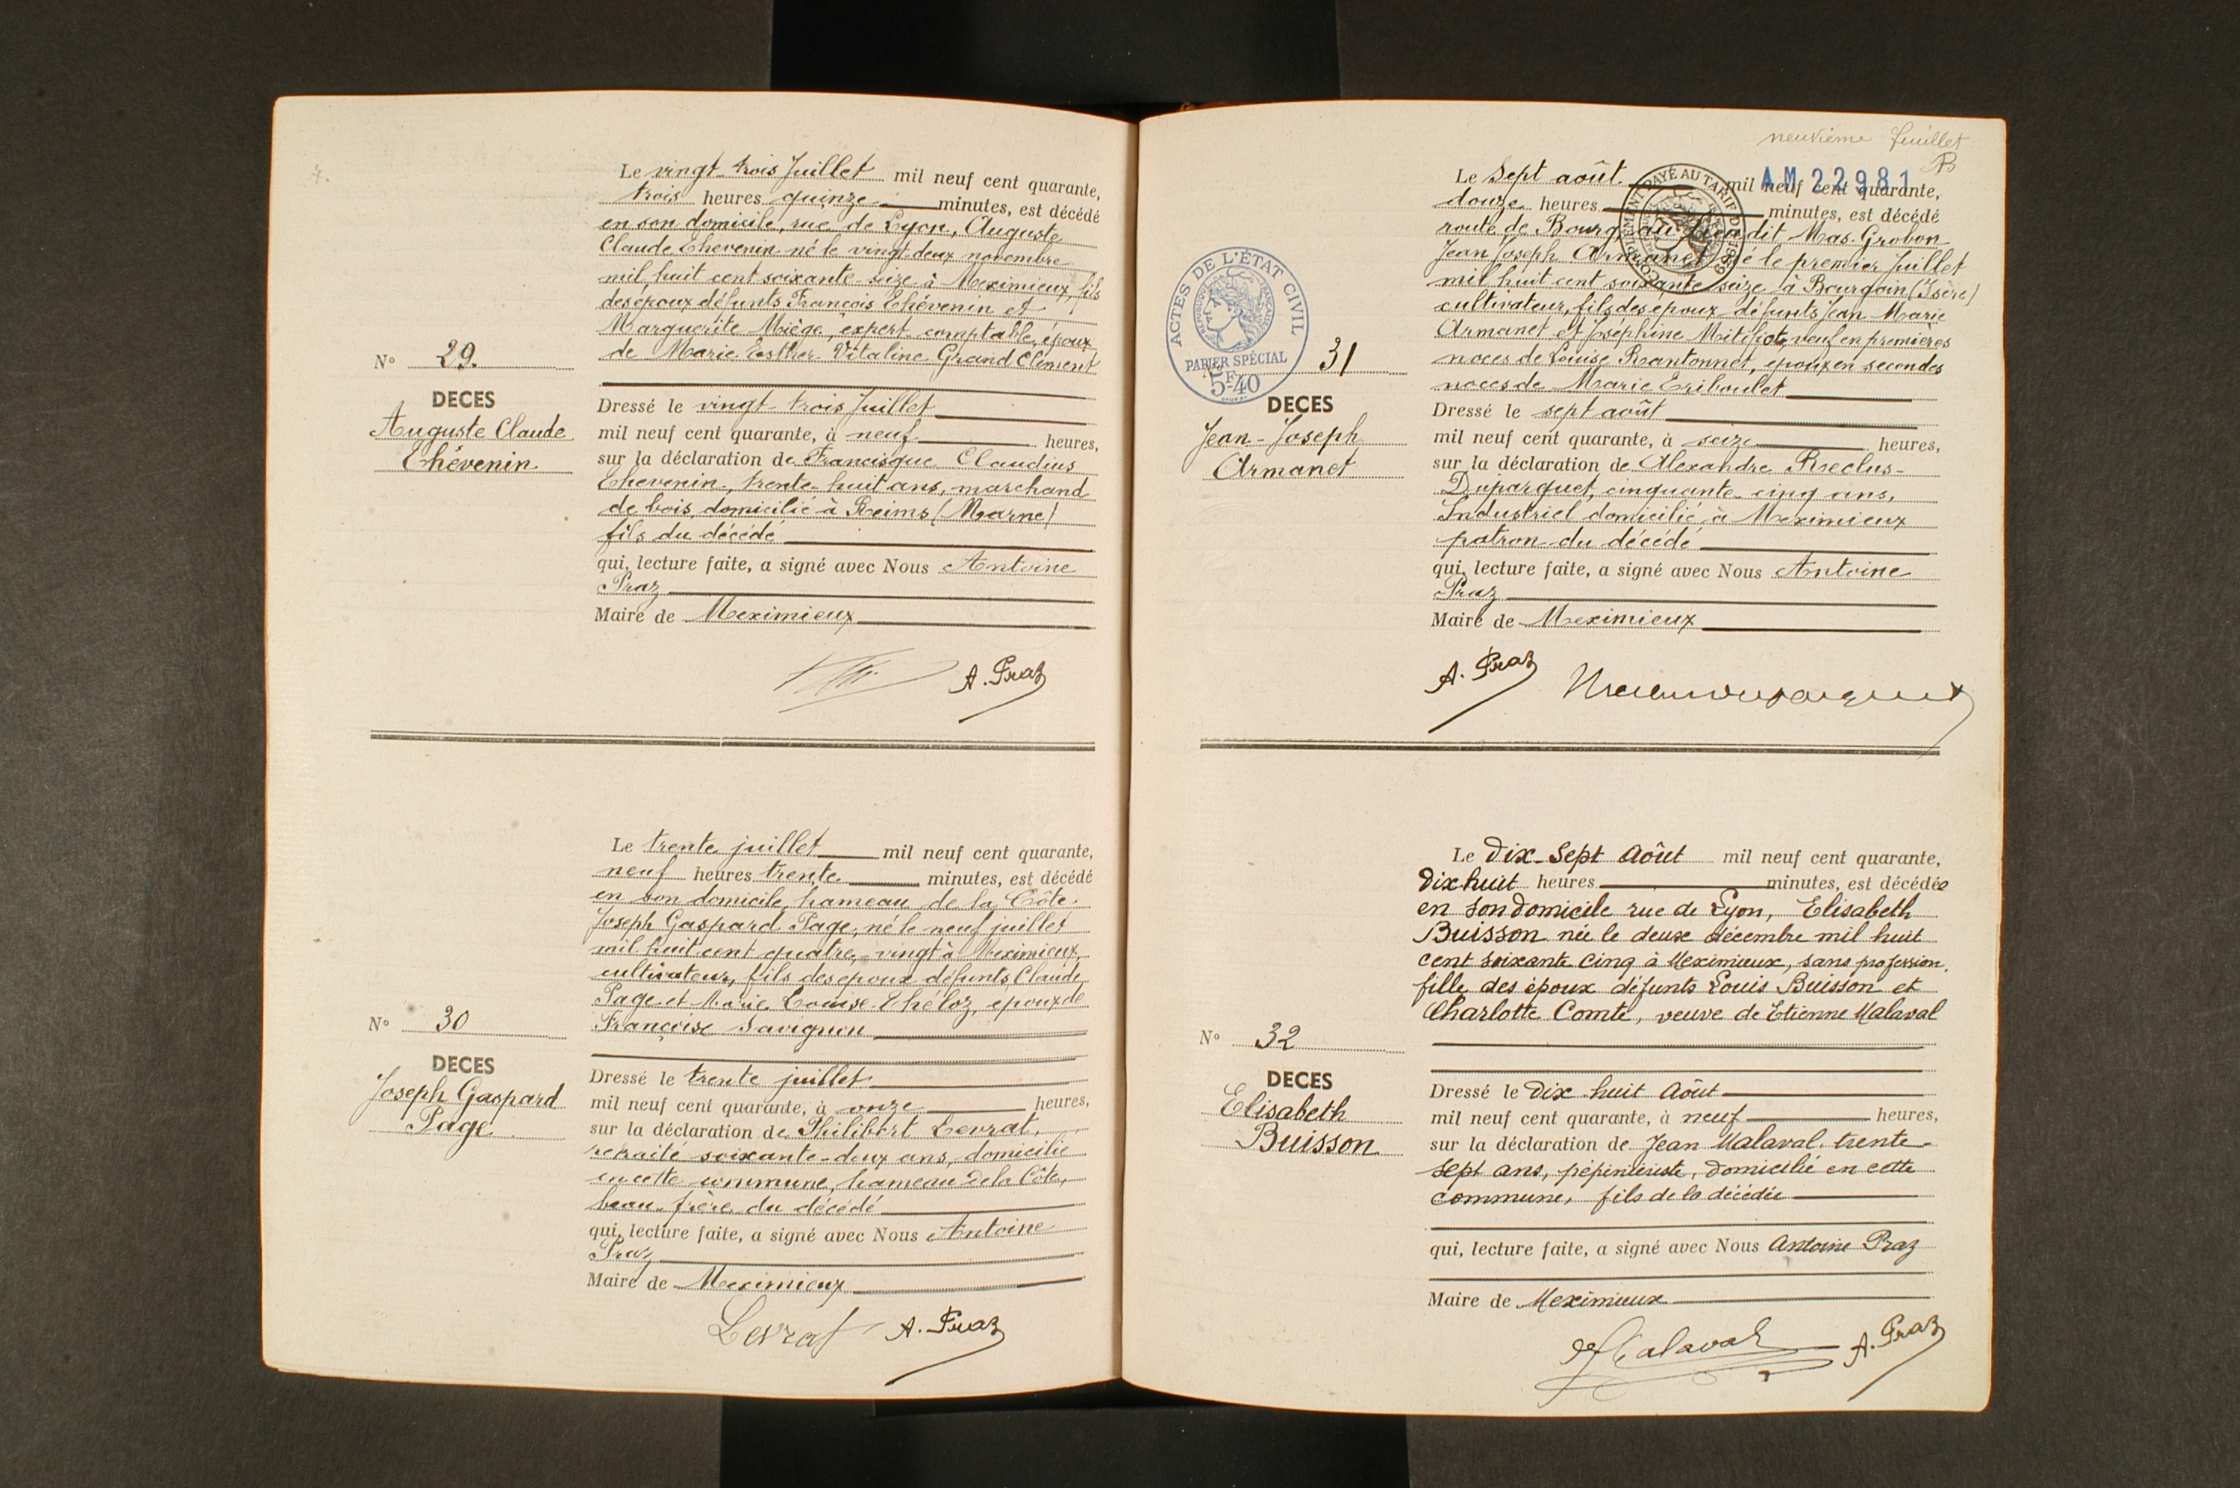 Le vingt-trois Juillet mil neuf cent quarante,
trois heures quinze minutes, est décédé
en son domicile, rue de Lyon, Auguste
Claude Thevenin né le vingt-deux novembre
mil huit cent soixante-seize à Meximieux, fils
des époux défunts François Thévenin et
Marguerite Miège, expert-comptable, époux
de Marie Esther Vitaline Grand Clément
N° 29.
DECES
Auguste Claude
Thévenin
Dressé le vingt-trois Juillet
mil neuf cent quarante, à neuf heures,
sur la déclaration de Francisque Claudius
Thevenin, trente-huit ans, marchand
de bois, domicilié à Reims (Marne)
fils du décédé
qui, lecture faite, a signé avec Nous Antoine
Praz
Maire de Meximieux
A. Praz
Le trente juillet mil neuf cent quarante,
neuf heures trente minutes, est décédé
en son domicile, hameau de la Côte.
Joseph Gaspard Page, né le neuf juillet
mil huit cent quatre-vingt à Meximieux,
cultivateur, fils des epoux défunts Claude
Page et Marie Louise Théloz, epoux de
Françoise Savignon
N° 30
DECES
Joseph Gaspard
Page
Dressé le trente juillet
mil neuf cent quarante, à onze heures,
sur la déclaration de Philibert Levrat,
retraité soixante-deux ans, domicilié
en cette commune, hameau de la Côte,
beau-frère du décédé
qui, lecture faite, a signé avec Nous Antoine
Praz
Maire de Meximieux
Levrat A. Praz
neuvième feuillet
AM 22981
COMPLÉMENT PAYÉ AU TARIF DE
Le Sept août mil neuf cent quarante,
douze heures minutes, est décédé
route de Bourg au lieu dit Mas-Grobon
Jean Joseph Armanet né le premier Juillet
mil huit cent soixante seize à Bourgoin (Isère)
cultivateur, fils des epoux défunts Jean Marie
Armanet et Josephine veuf en premières
noces de Louise Rantonnet, epoux en secondes
noces de Marie Eriboulet
ACTES DE L'ÉTAT CIVIL
PAPIER SPÉCIAL
5F40
31
DECES
Jean-Joseph
Armanet
Dressé le sept août
mil neuf cent quarante, à seize heures,
sur la déclaration de Alexandre Reclus-
Duparquet, cinquante-cinq ans,
Industriel domicilié à Meximieux
patron du décédé
qui, lecture faite, a signé avec Nous Antoine
Praz
Maire de Meximieux
A. Praz
Le Dix-Sept Août mil neuf cent quarante,
Dix huit heures minutes, est décédée
en son Domicile rue de Lyon, Elisabeth
Buisson née le deux décembre mil huit
cent soixante cinq à Meximieux, sans profession,
fille des époux défunts Louis Buisson et
Charlotte Comte, veuve de Etienne Malaval
N° 32
DECES
Elisabeth
Buisson
Dressé le Dix-huit Août
mil neuf cent quarante, à neuf heures,
sur la déclaration de Jean Malaval trente-
sept ans, pépiniériste, domicilié en cette
commune, fils de la décédée
qui, lecture faite, a signé avec Nous Antoine Praz
Maire de Meximieux
Malaval A. Praz